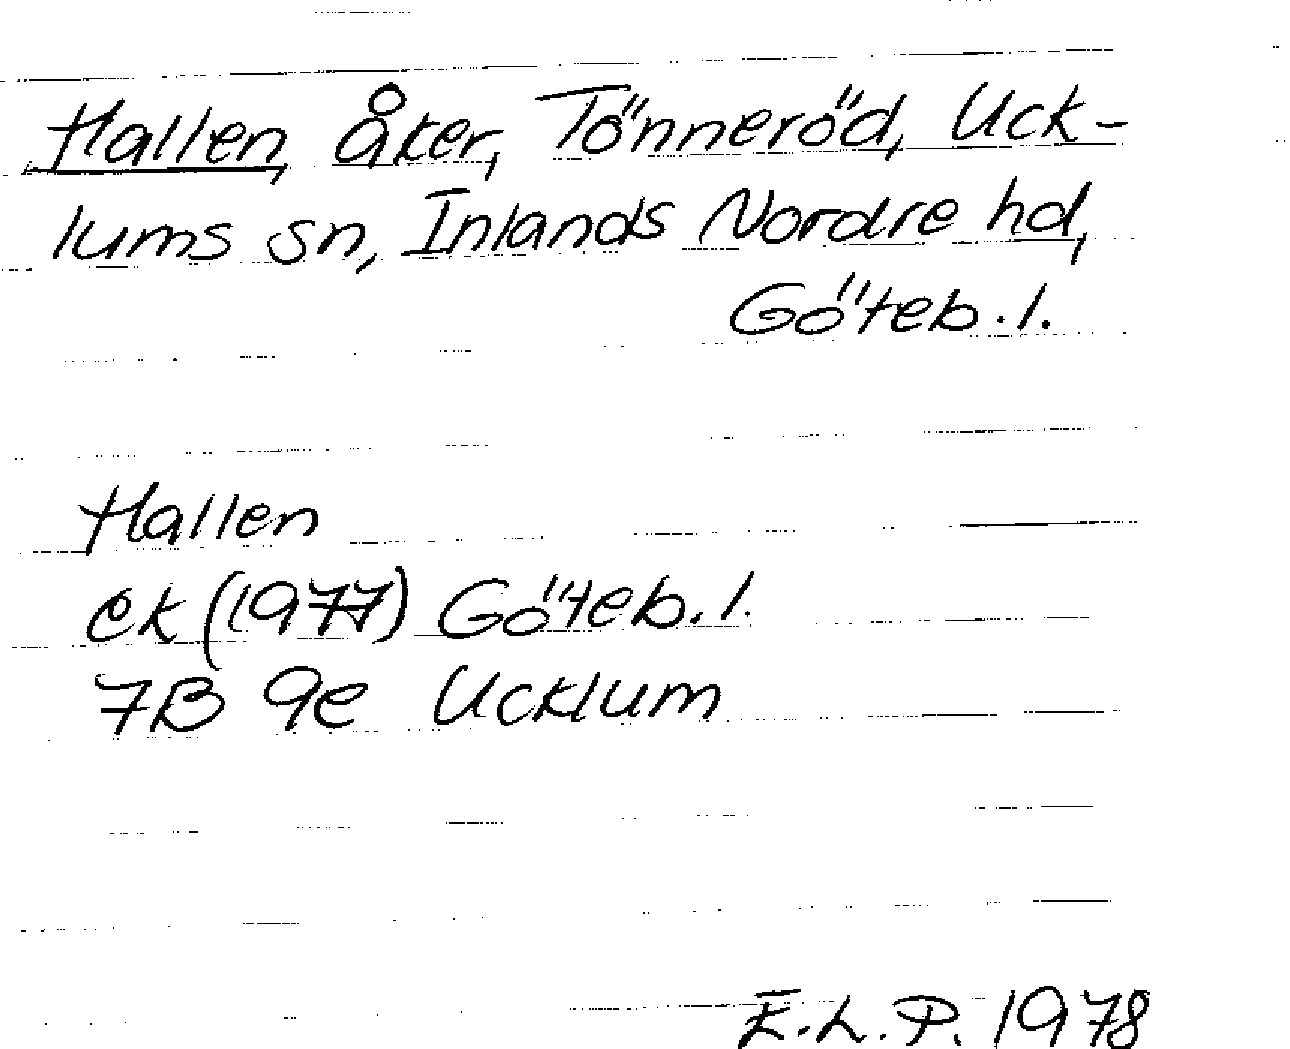 Hallen, åker, Tönneröd, Uck-
lums sn, Inlands Nordre hd,
Göteb.l.
Hallen
ek (1977) Göteb.l.
7B 9e Ucklum
E.L.P. 1978